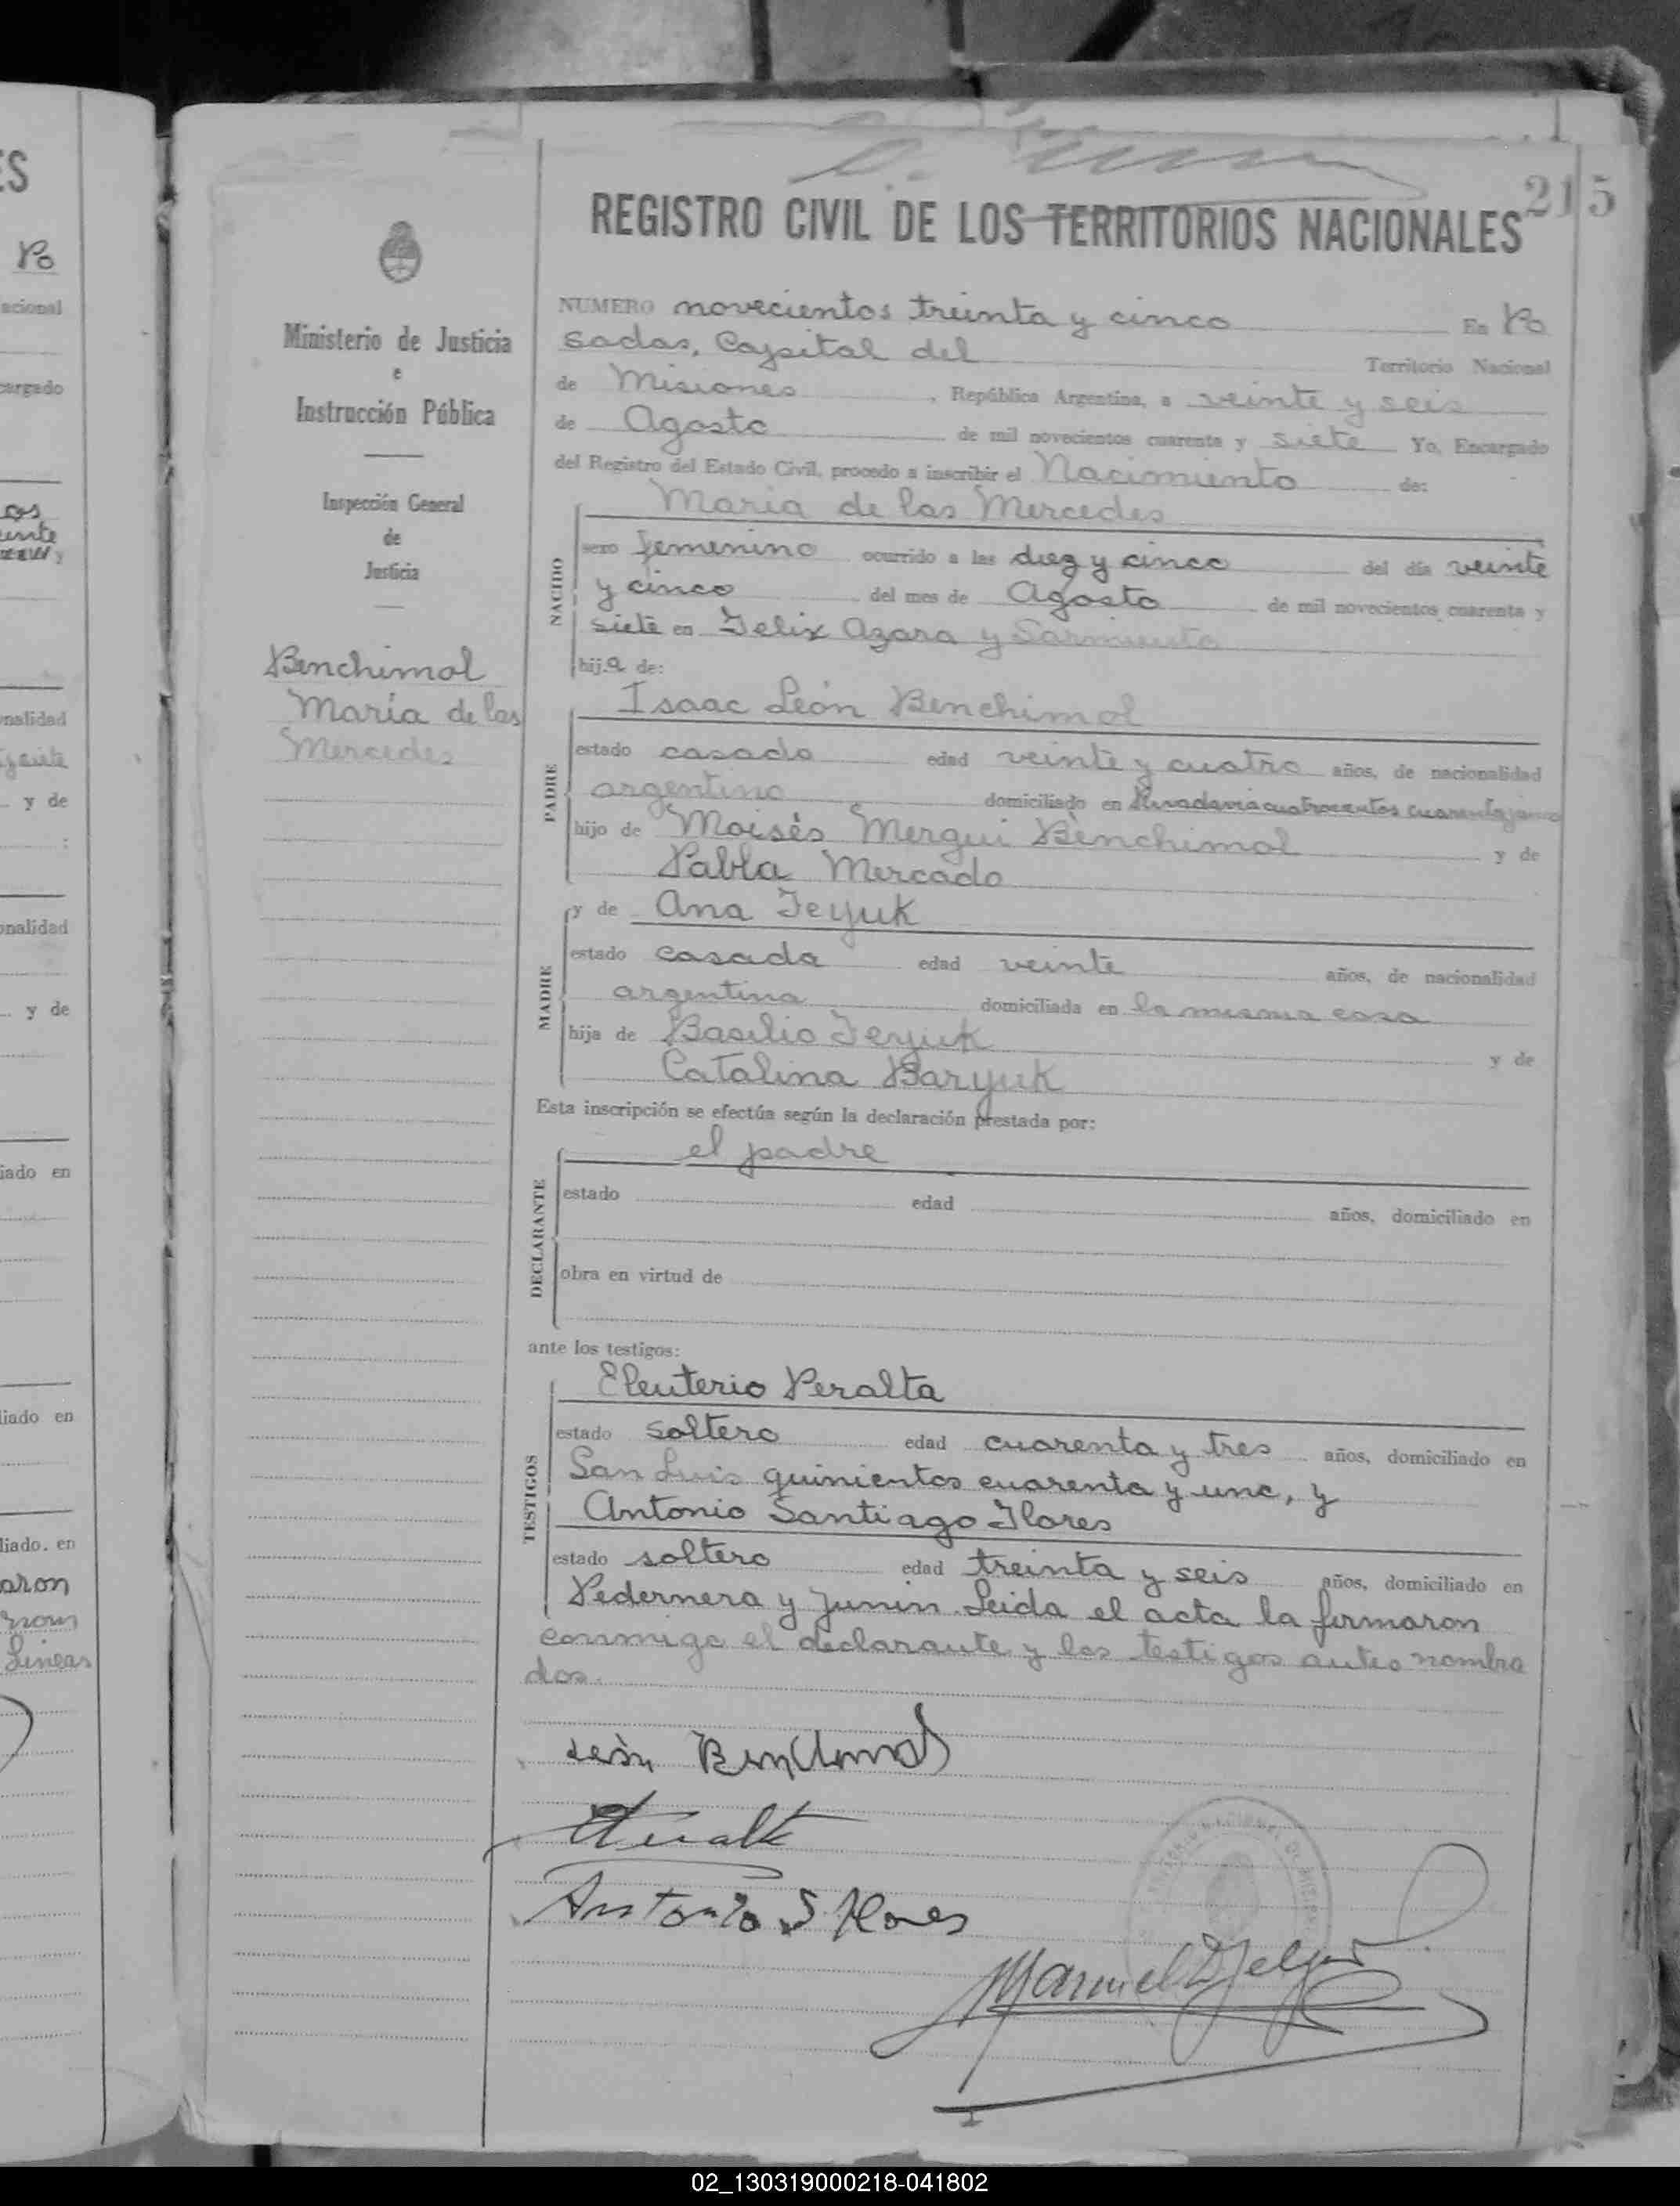 215
REGISTRO CIVIL DE LOS TERRITORIOS NACIONALES
Ministerio de Justicia
e
Instrucción Pública
Inspección General
de
Justicia
Benchimol
María de las
Mercedes
NUMERO novecientos treinta y cinco En Po
sadas, Capital del Territorio Nacional
de Misiones, República Argentina, a veinte y seis
de Agosto de mil novecientos cuarenta y siete Yo, Encargado
del Registro del Estado Civil, procedo a inscribir el Nacimiento de:
María de las Mercedes
NACIDO
sexo femenino ocurrido a las diez y cinco del día veinte
y cinco del mes de Agosto de mil novecientos cuarenta y
siete en Felix Azara y Sarmiento
hija de:
Isaac León Benchimol
PADRE
estado casado edad veinte y cuatro años, de nacionalidad
argentino domiciliado en Rivadavia cuatrocientos cuarenta y
hijo de Moisés Mergui Benchimol y de
Pabla Mercado
y de Ana Jeyuk
MADRE
estado casada edad veinte años, de nacionalidad
argentina domiciliada en la misma casa
hija de Basilio Jeyuk y de
Catalina Baryuk
Esta inscripción se efectúa según la declaración prestada por:
el padre
DECLARANTE
estado edad años, domiciliado en
obra en virtud de
ante los testigos:
Eleuterio Peralta
TESTIGOS
estado soltero edad cuarenta y tres años, domiciliado en
San Luis quinientos cuarenta y uno, y
Antonio Santiago Flores
estado soltero edad treinta y seis años, domiciliado en
Pedernera y Junin. Leida el acta la firmaron
conmigo el declarante y los testigos antes nombra
dos.
León Benchimol
Peralta
Antonio S Flores
Manuel
ES
Po
acional
cargado
os
nalidad
y de
:
onalidad
y de
iado en
liado en
liado. en
aron
Lineas
02_130319000218-041802